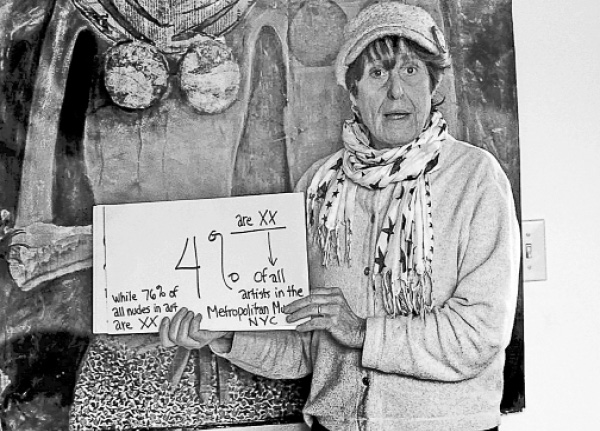 are XX
4% of all
artists in the
Metropolitan Mu
NYC
while 76% of
all nudes in art
are XX